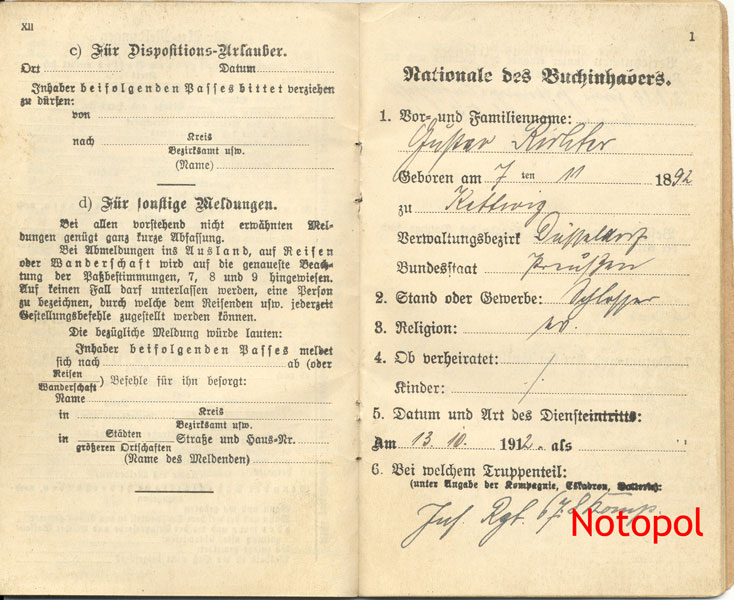 XII
c) Für Dispositions-Urlauber.
Ort Datum
Inhaber beifolgenden Passes bittet verziehen
zu dürfen:
von
nach Kreis
Bezirksamt usw.
(Name)
d) Für sonstige Meldungen.
Bei allen vorstehend nicht erwähnten Mel-
dungen genügt ganz kurze Abfassung.
Bei Abmeldungen ins Ausland, auf Reisen
oder Wanderschaft wird auf die genaueste Beach-
tung der Paßbestimmungen, 7, 8 und 9 hingewiesen.
Auf keinen Fall darf unterlassen werden, eine Person
zu bezeichnen, durch welche dem Reisenden usw. jederzeit
Gestellungsbefehle zugestellt werden können.
Die bezügliche Meldung würde lauten:
Inhaber beifolgenden Passes meldet
sich nach ab (oder
Reisen
Wanderschaft) Befehle für ihn besorgt:
Name
in Kreis
Bezirksamt usw.
in Städten Straße und Haus-Nr.
größeren Ortschaften
(Name des Meldenden)
1
Nationale des Buchinhabers.
1. Vor- und Familienname:
Gustav Richter
Geboren am 7 ten 11 1892
zu Kettwig
Verwaltungsbezirk Düsseldorf
Bundesstaat Preußen
2. Stand oder Gewerbe: Schlosser
3. Religion: ev.
4. Ob verheiratet: /
Kinder: /
5. Datum und Art des Diensteintritts:
Am 13 10. 1912. als
6. Bei welchem Truppenteil:
(unter Angabe der Kompagnie, Eskadron, Batterie):
Inf. Rgt. 67. Komp.
Notopol